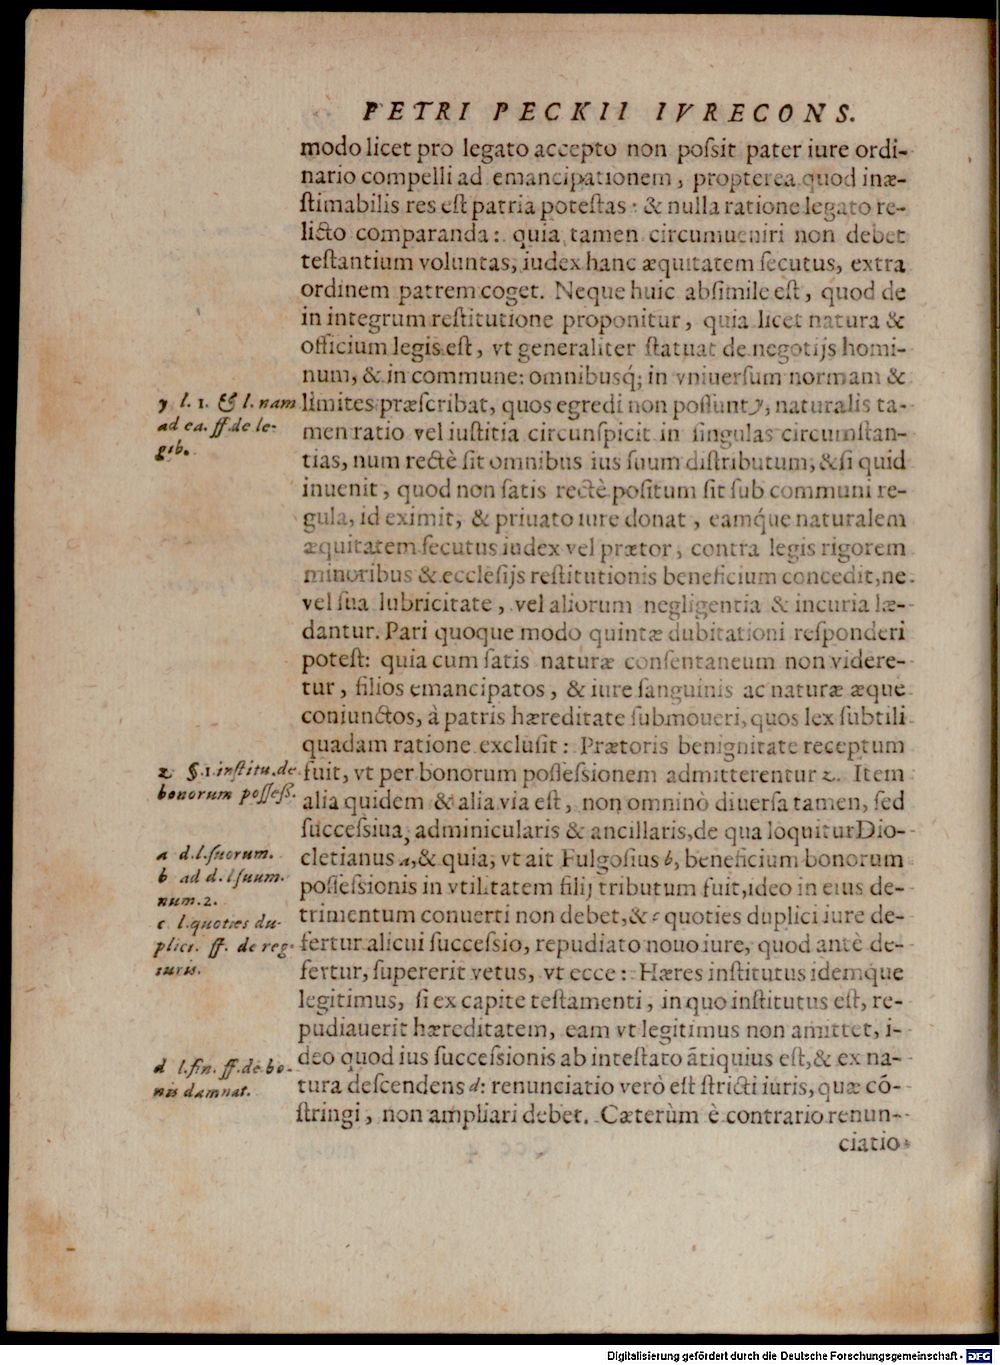 PETRI PECKII IVRECONS.
modo licet pro legato accepto non poſsit pater iure ordi-
nario compelli ad emancipationem, propterea quod inæ-
ſtimabilis res eſt patria poteſtas: & nulla ratione legato re-
licto comparanda: quia tamen circumueniri non debet
teſtantium voluntas, iudex hanc æquitatem ſecutus, extra
ordinem patrem coget. Neque huic abſimile eſt, quod de
in integrum reſtitutione proponitur, quia licet natura &
officium legis eſt, vt generaliter ſtatuat de negotijs homi-
num, & in commune: omnibusq́; in vniuerſum normam &
limites præſcribat, quos egredi non poſſunt y, naturalis ta-
men ratio vel iuſtitia circunſpicit in ſingulas circumſtan-
tias, num rectè ſit omnibus ius ſuum diſtributum, & ſi quid
inuenit, quod non ſatis rectè poſitum ſit ſub communi re-
gula, id eximit, & priuato iure donat, eamq́ue naturalem
æquitatem ſecutus iudex vel prætor, contra legis rigorem
minoribus & eccleſijs reſtitutionis beneficium concedit, ne
vel ſua lubricitate, vel aliorum negligentia & incuria læ-
dantur. Pari quoque modo quintæ dubitationi reſponderi
poteſt: quia cum ſatis naturæ conſentaneum non videre-
tur, filios emancipatos, & iure ſanguinis ac naturæ æque
coniunctos, à patris hæreditate ſubmoueri, quos lex ſubtili
quadam ratione excluſit: Prætoris benignitate receptum
fuit, vt per bonorum poſſeſsionem admitterentur z. Item
alia quidem & alia via eſt, non omninò diuerſa tamen, ſed
ſucceſsiua, adminicularis & ancillaris, de qua loquitur Dio-
cletianus a, & quia, vt ait Fulgoſius b, beneficium bonorum
poſſeſsionis in vtilitatem filij tributum fuit, ideo in eius de-
trimentum conuerti non debet, & c quoties duplici iure de-
fertur alicui ſucceſsio, repudiato nouo iure, quod antè de-
fertur, ſupererit vetus, vt ecce: Hæres inſtitutus idemque
legitimus, ſi ex capite teſtamenti, in quo inſtitutus eſt, re-
pudiauerit hæreditatem, eam vt legitimus non amittet, i-
deo quod ius ſucceſsionis ab inteſtato ãtiquius eſt, & ex na-
tura deſcendens d: renunciatio verò eſt ſtricti iuris, quæ cō-
ſtringi, non ampliari debet. Cæterùm è contrario renun-
ciatio
y l. 1. & l. nam
ad ea. ff. de le-
gib.
z §. 1. inſtitu. de
bonorum poſſeſſ.
a d. l. ſuorum.
b ad d. l ſuum.
num. 2.
c l. quoties du-
plici. ff. de reg.
iuris.
d l. fin. ff. de bo-
nis damnat.
Digitalisierung gefördert durch die Deutsche Forschungsgemeinschaft - DFG